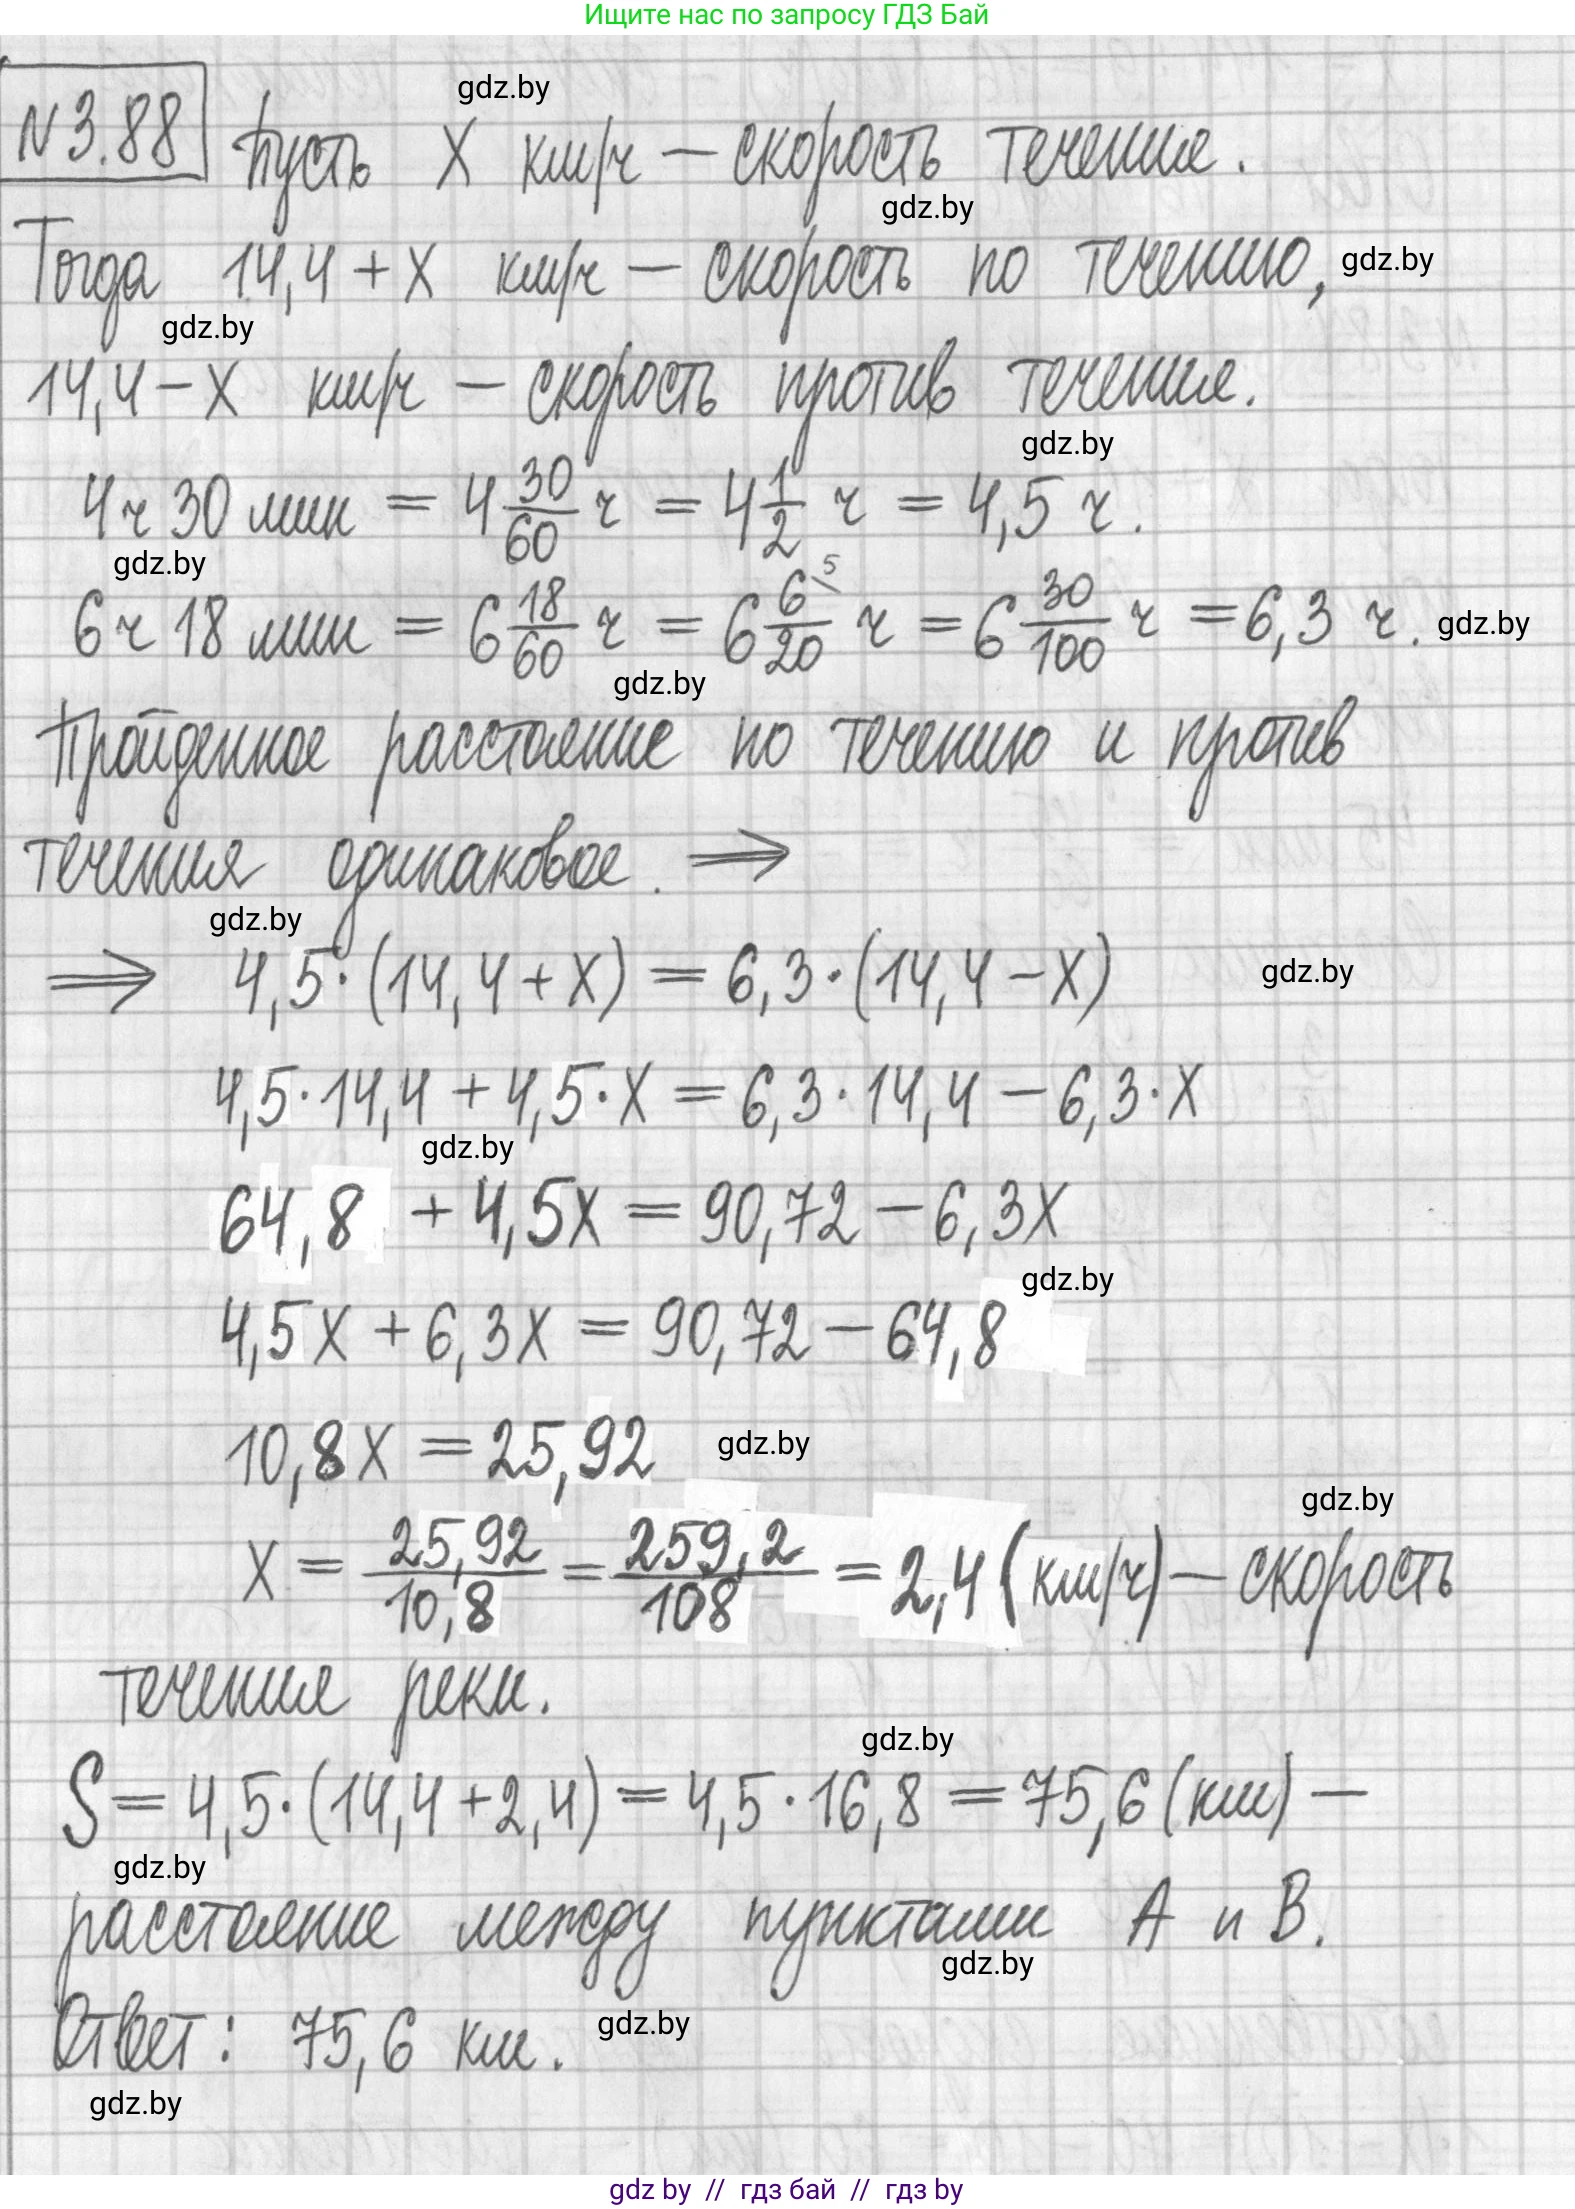 Ищите нас по запросу ГДЗ Бай
gdz.by
N 3.88 Пусть X км/ч – скорость течения.
gdz.by
Тогда 14,4 + X км/ч – скорость по течению, gdz.by
gdz.by
14,4 – X км/ч – скорость против течения.
gdz.by
4 ч 30 мин = 4 30/60 ч = 4 1/2 ч = 4,5 ч.
gdz.by
6 ч 18 мин = 6 18/60 ч = 6 6\5/20 ч = 6 30/100 ч = 6,3 ч. gdz.by
gdz.by
Пройденное расстояние по течению и против
течения одинаковое. ⟹
gdz.by
⟹ 4,5·(14,4 + X) = 6,3·(14,4 – X) gdz.by
4,5·14,4 + 4,5·X = 6,3·14,4 – 6,3·X
gdz.by
64,8 + 4,5X = 90,72 – 6,3X
gdz.by
4,5X + 6,3X = 90,72 – 64,8
10,8X = 25,92 gdz.by
gdz.by
X = 25,92/10,8 = 259,2/108 = 2,4 (км/ч) – скорость
течения реки.
gdz.by
S = 4,5·(14,4 + 2,4) = 4,5·16,8 = 75,6 (км) –
gdz.by
расстояние между пунктами A и B.
gdz.by
Ответ: 75,6 км. gdz.by
gdz.by
gdz by // гдз бай // гдз by